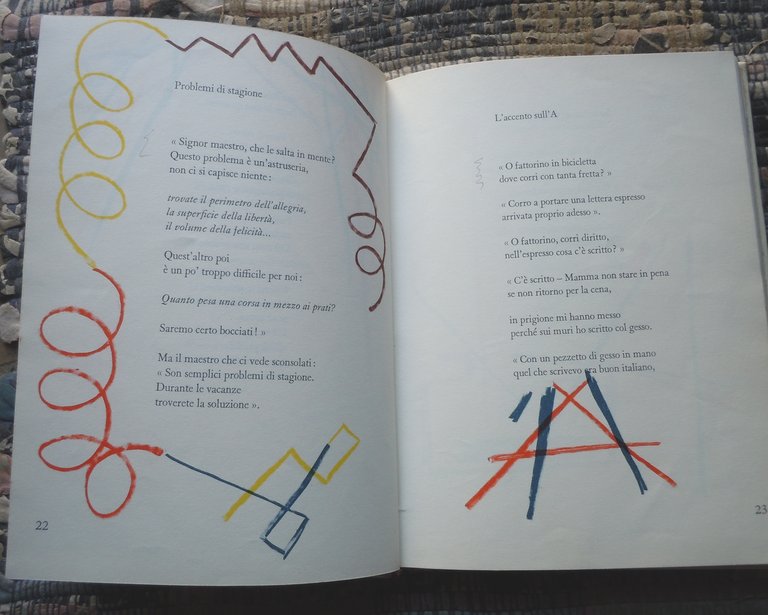 Problemi di stagione
« Signor maestro, che le salta in mente?
Questo problema è un'astruseria,
non ci si capisce niente :
trovate il perimetro dell'allegria,
la superficie della libertà,
il volume della felicità...
Quest'altro poi
è un po' troppo difficile per noi :
Quanto pesa una corsa in mezzo ai prati?
Saremo certo bocciati ! »
Ma il maestro che ci vede sconsolati :
« Son semplici problemi di stagione.
Durante le vacanze
troverete la soluzione ».
22
L'accento sull'A
« O fattorino in bicicletta
dove corri con tanta fretta? »
« Corro a portare una lettera espresso
arrivata proprio adesso ».
« O fattorino, corri diritto,
nell'espresso cosa c'è scritto? »
« C'è scritto – Mamma non stare in pena
se non ritorno per la cena,
in prigione mi hanno messo
perché sui muri ho scritto col gesso.
« Con un pezzetto di gesso in mano
quel che scrivevo era buon italiano,
'A
23